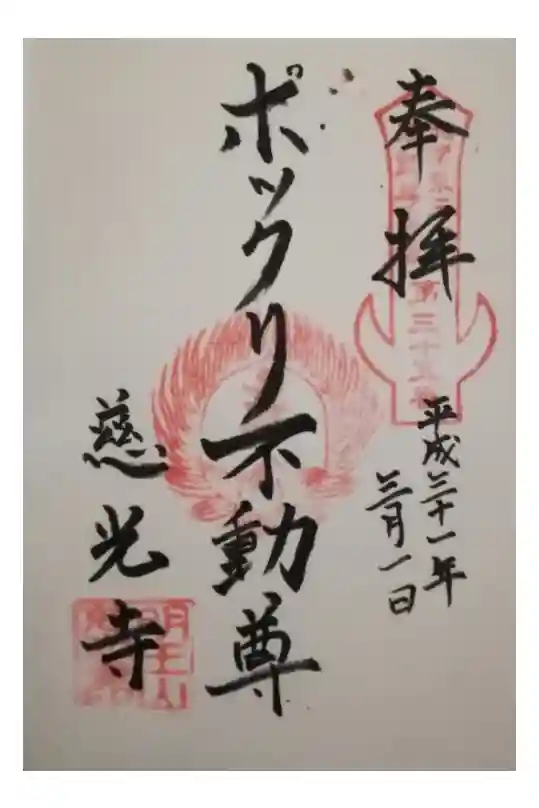 奉拝
平成三十一年
三月一日
ポックリ不動尊
慈光寺